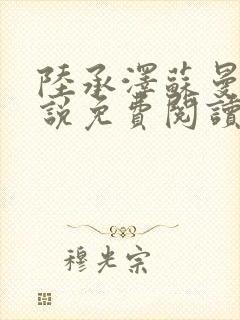 陸承澤蘇曼
說免費閱讀
穆光宗